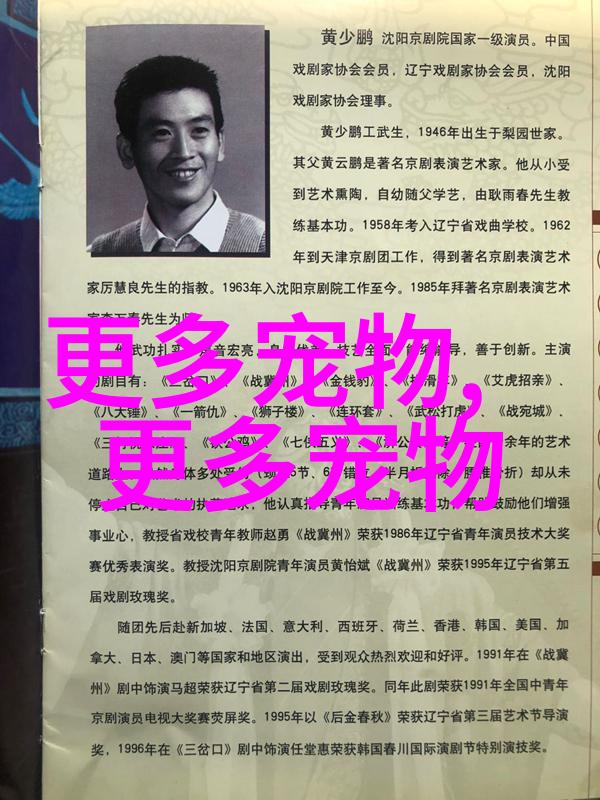 黄少鹏 沈阳京剧院国家一级演员。中国
戏剧家协会会员，辽宁戏剧家协会会员，沈阳
戏剧家协会理事。
黄少鹏工武生，1946年出生于梨园世家。
其父黄云鹏是著名京剧表演艺术家。他从小受
到艺术熏陶，自幼随父学艺，由耿雨春先生教
练基本功。1958年考入辽宁省戏曲学校。1962
年到天津京剧团工作，得到著名京剧表演艺术
家厉慧良先生的指教。1963年入沈阳京剧院工作至今。1985年拜著名京剧表演艺术
先生为
更多宠物，
武功扎实 音宏亮， 技艺全面 导，善于创新。主演
剧目有： 《战冀州》、《金钱豹》、 《艾虎招亲》、
《八大锤》、《一箭仇》、《狮子楼》、《连环套》、《武松打虎》、《战宛城》、
《七侠五义》 余年的艺术
更多宠物
道路 体多处受 错 折）却从未
停 他认真指导青年 练基本功，帮 鼓励他们增强
事业心，教授省戏校青年教师赵勇《战冀州》荣获1986年辽宁省青年演员技术大奖
赛优秀表演奖。教授沈阳京剧院青年演员黄怡斌《战冀州》荣获1995年辽宁省第五
届戏剧玫瑰奖。
随团先后赴新加坡、法国、意大利、西班牙、荷兰、香港、韩国、美国、加
拿大、日本、澳门等国家和地区演出，受到观众热烈欢迎和好评。1991年在《战冀
州》剧中饰演马超荣获辽宁省第二届戏剧玫瑰奖。同年此剧荣获1991年全国中青年
京剧演员电视大奖赛荧屏奖。1995年以《后金春秋》荣获辽宁省第三届艺术节导演
奖，1996年在《三岔口》剧中饰演任堂惠荣获韩国春川国际演剧节特别演技奖。